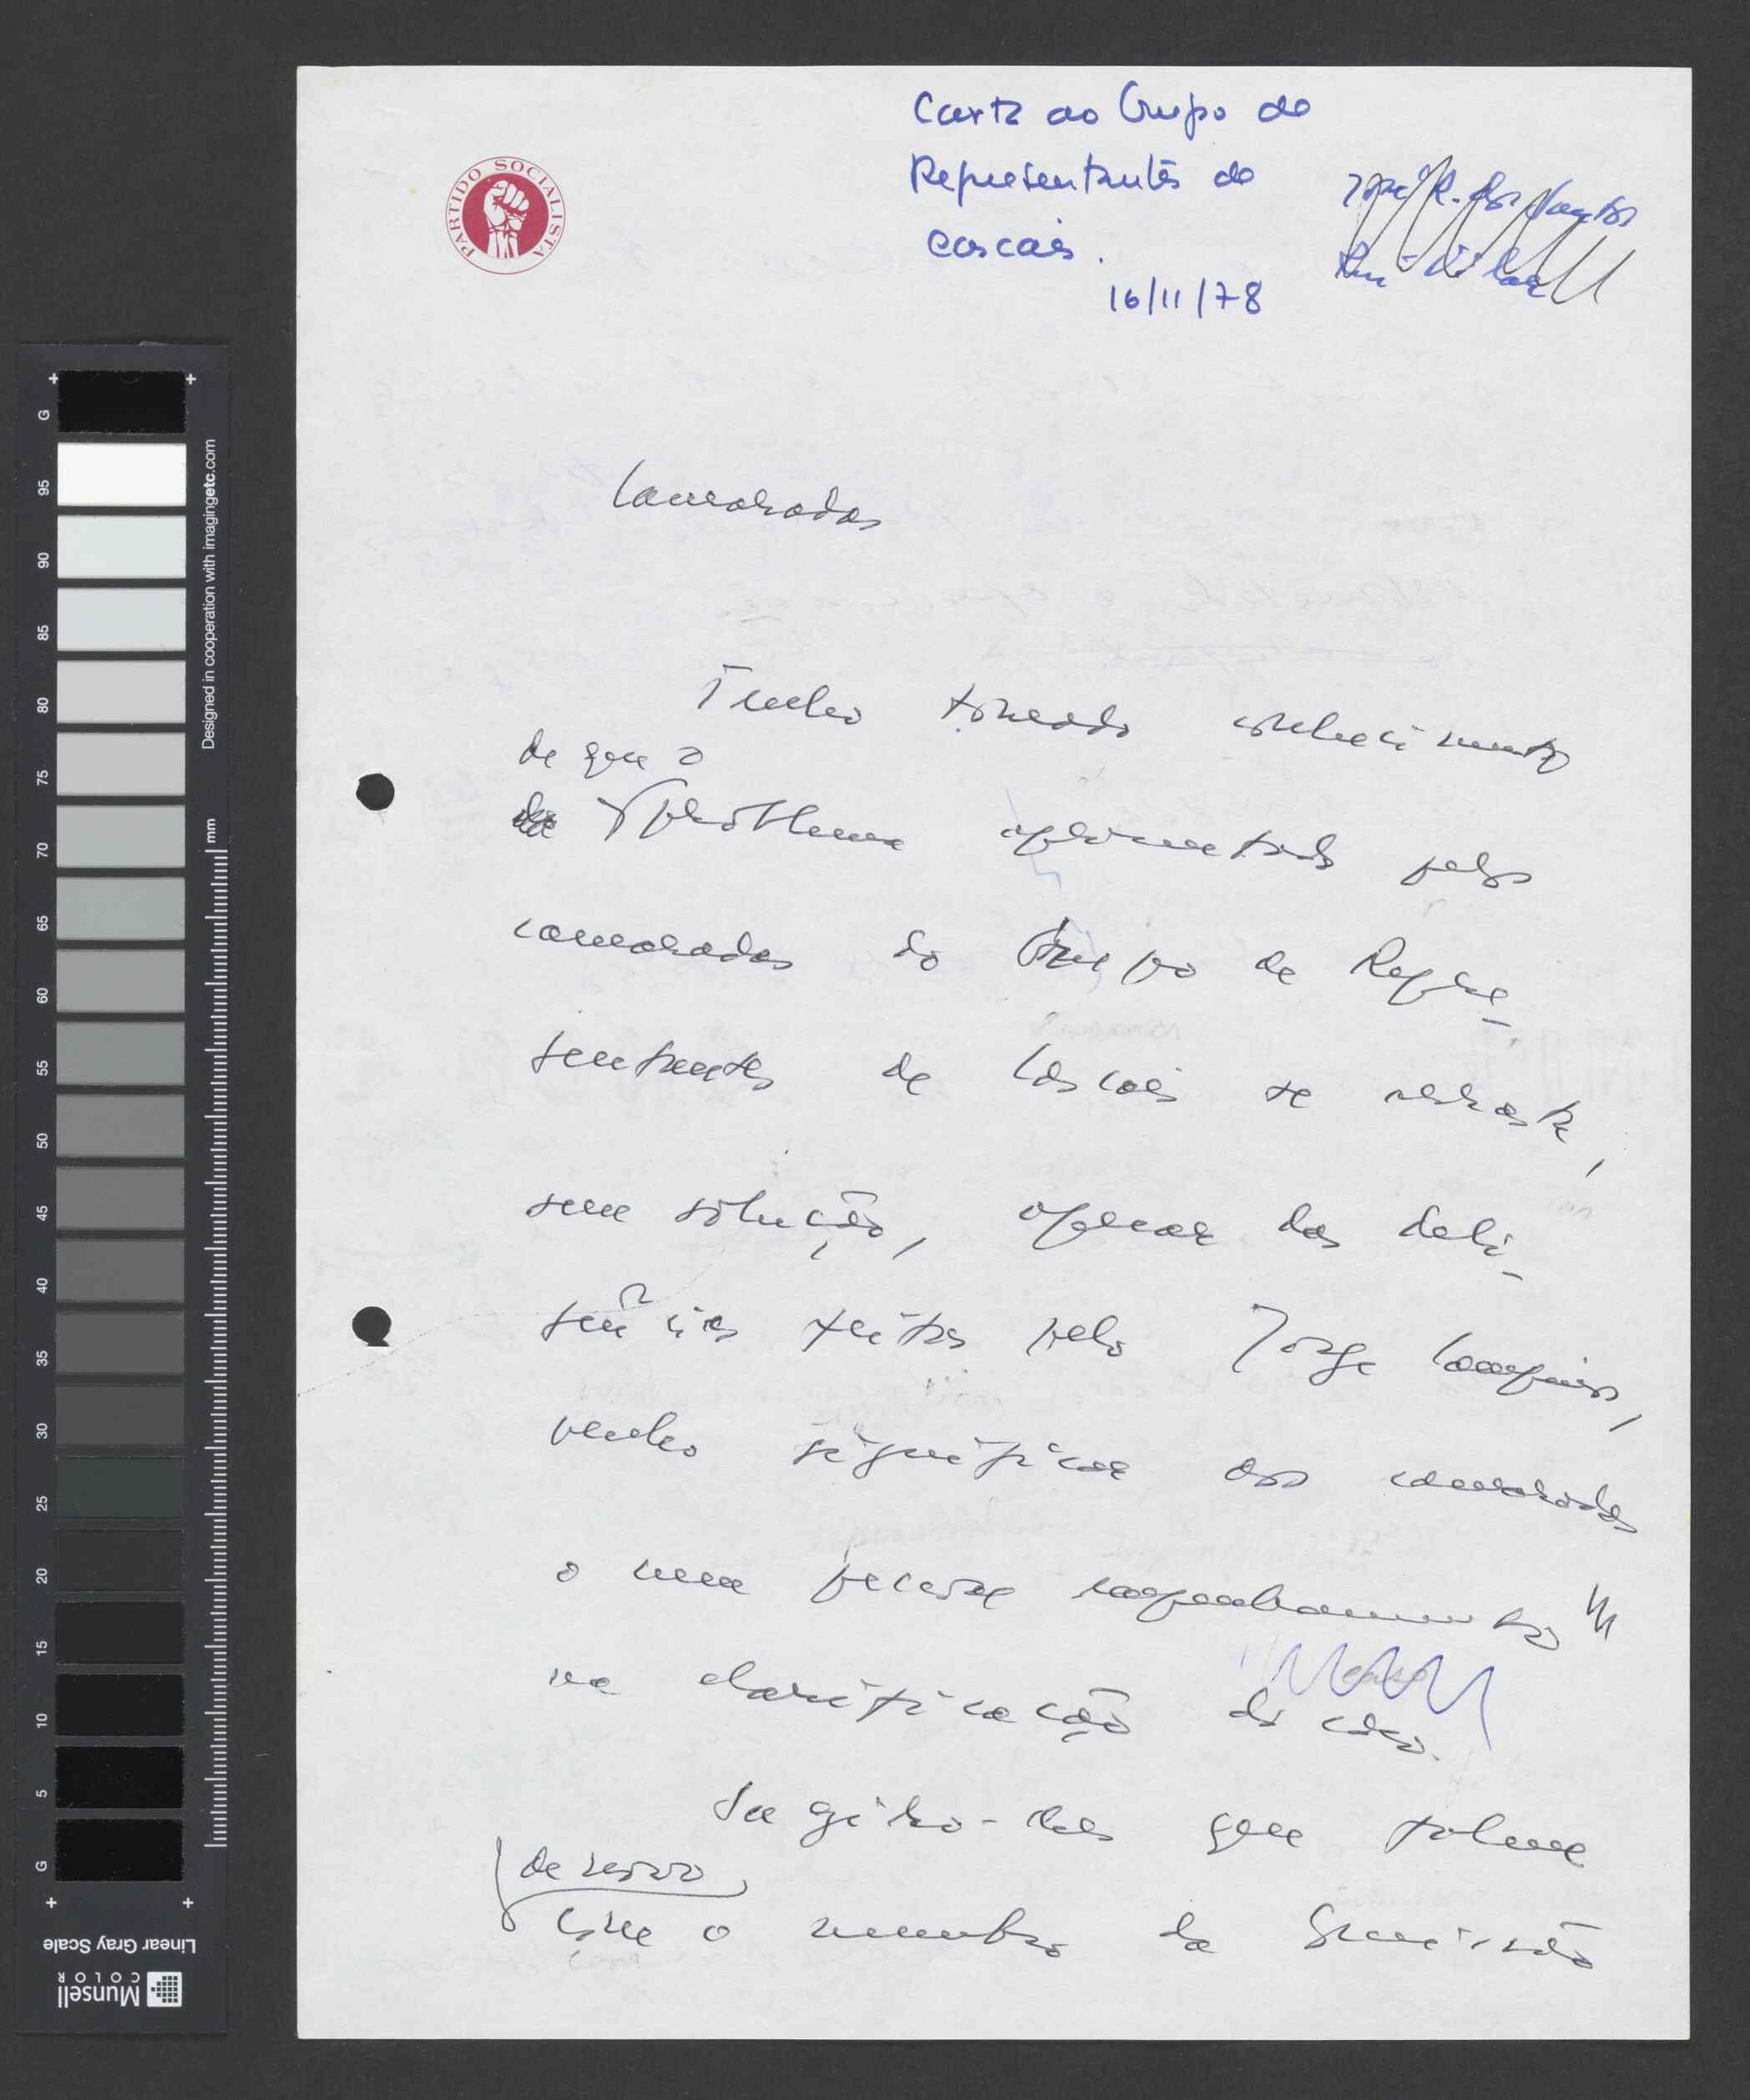 Carta ao Grupo de
Representantes de
Cascais.
16/11/78
José R. dos Santos
Rui Vilar
PARTIDO SOCIALISTA
Camaradas
Tendo tomado conhecimento
de que o
problema apresentado pelos
camaradas do Grupo de Repre-
sentantes de Cascais se arrasta,
sem solução, apesar das deli-
gências feitas pelo Jorge Campinos,
venho significar aos camaradas
o meu pessoal empenhamento
na clarificação do caso.
Sugiro-lhes que falem
de novo
com o membro da Comissão
G 95 90 85 80 75 70 65 60 55 50 45 40 35 30 25 20 15 10 5 G
Designed in cooperation with imagingetc.com
mm
Linear Gray Scale
Munsell
COLOR